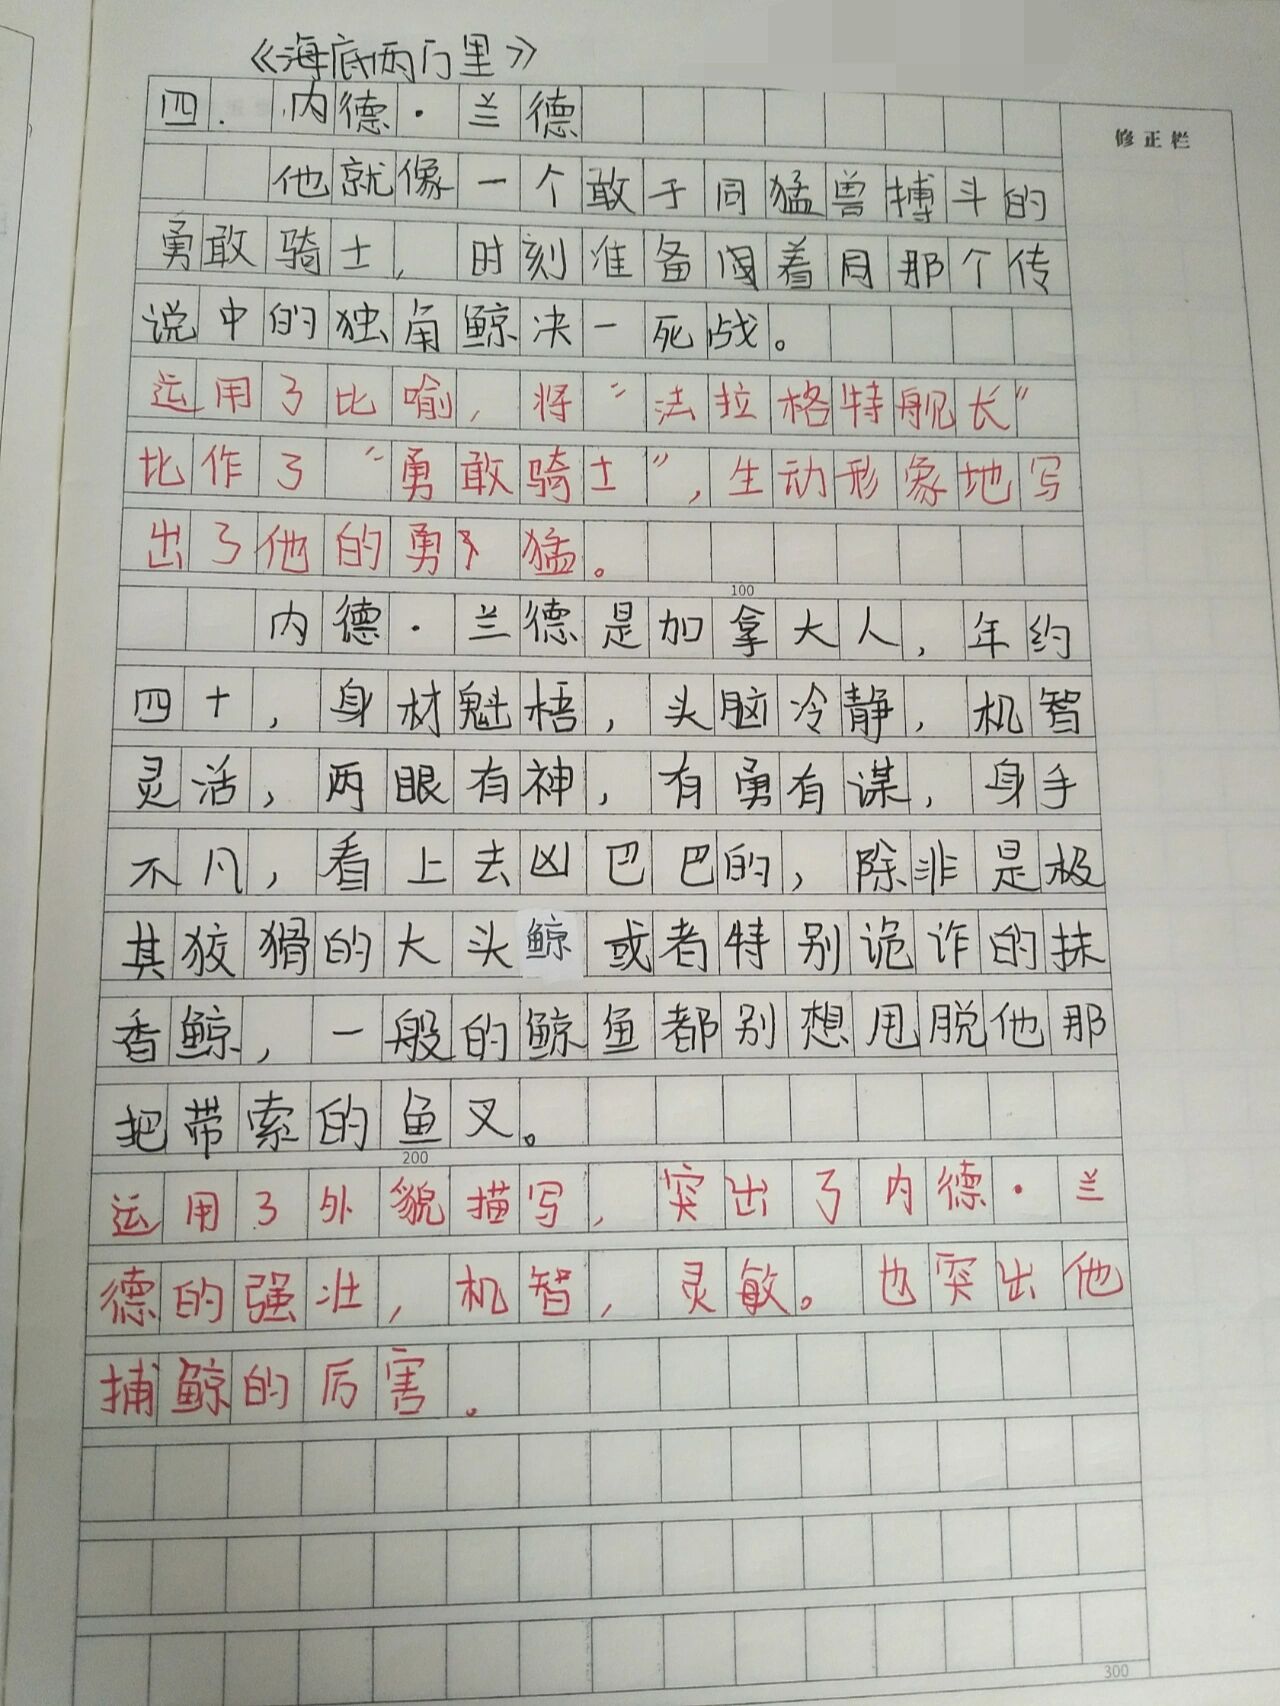 《海底两万里》
修正栏
四.内德·兰德
他就像一个敢于同猛兽搏斗的
勇敢骑士,时刻准备着同那个传
说中的独角鲸决一死战。
运用了比喻,将“法拉格特舰长”
比作了“勇敢骑士”,生动形象地写
出了他的勇猛。
100
内德·兰德是加拿大人,年约
四十,身材魁梧,头脑冷静,机智
灵活,两眼有神,有勇有谋,身手
不凡,看上去凶巴巴的,除非是极
其狡猾的大头鲸或者特别诡诈的抹
香鲸,一般的鲸鱼都别想甩脱他那
把带索的鱼叉。
200
运用了外貌描写,突出了内德·兰
德的强壮,机智,灵敏。也突出他
捕鲸的厉害.
300